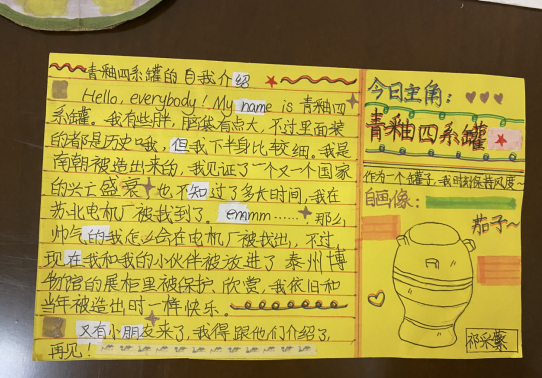 青釉四系罐的自我介绍
Hello, everybody! My name is 青釉四
系罐。我有些胖，脑袋有点大，不过里面装
的都是历史哦，但我下半身比较细。我是
南朝被造出来的，我见证了一个又一个国家
的兴亡盛衰，也不知过了多长时间，我在
苏北电机厂被找到了。emmm……那么
帅气的我怎么会在电机厂被找出，不过，
现在我和我的小伙伴被放进了泰州博
物馆的展柜里被保护、欣赏。我依旧和
当年被造出时一样快乐。
又有小朋友来了，我得跟他们介绍了，
再见！
今日主角：
青釉四系罐
作为一个罐子，我时刻保持风度~
自画像：
茄子~
祁采蘩